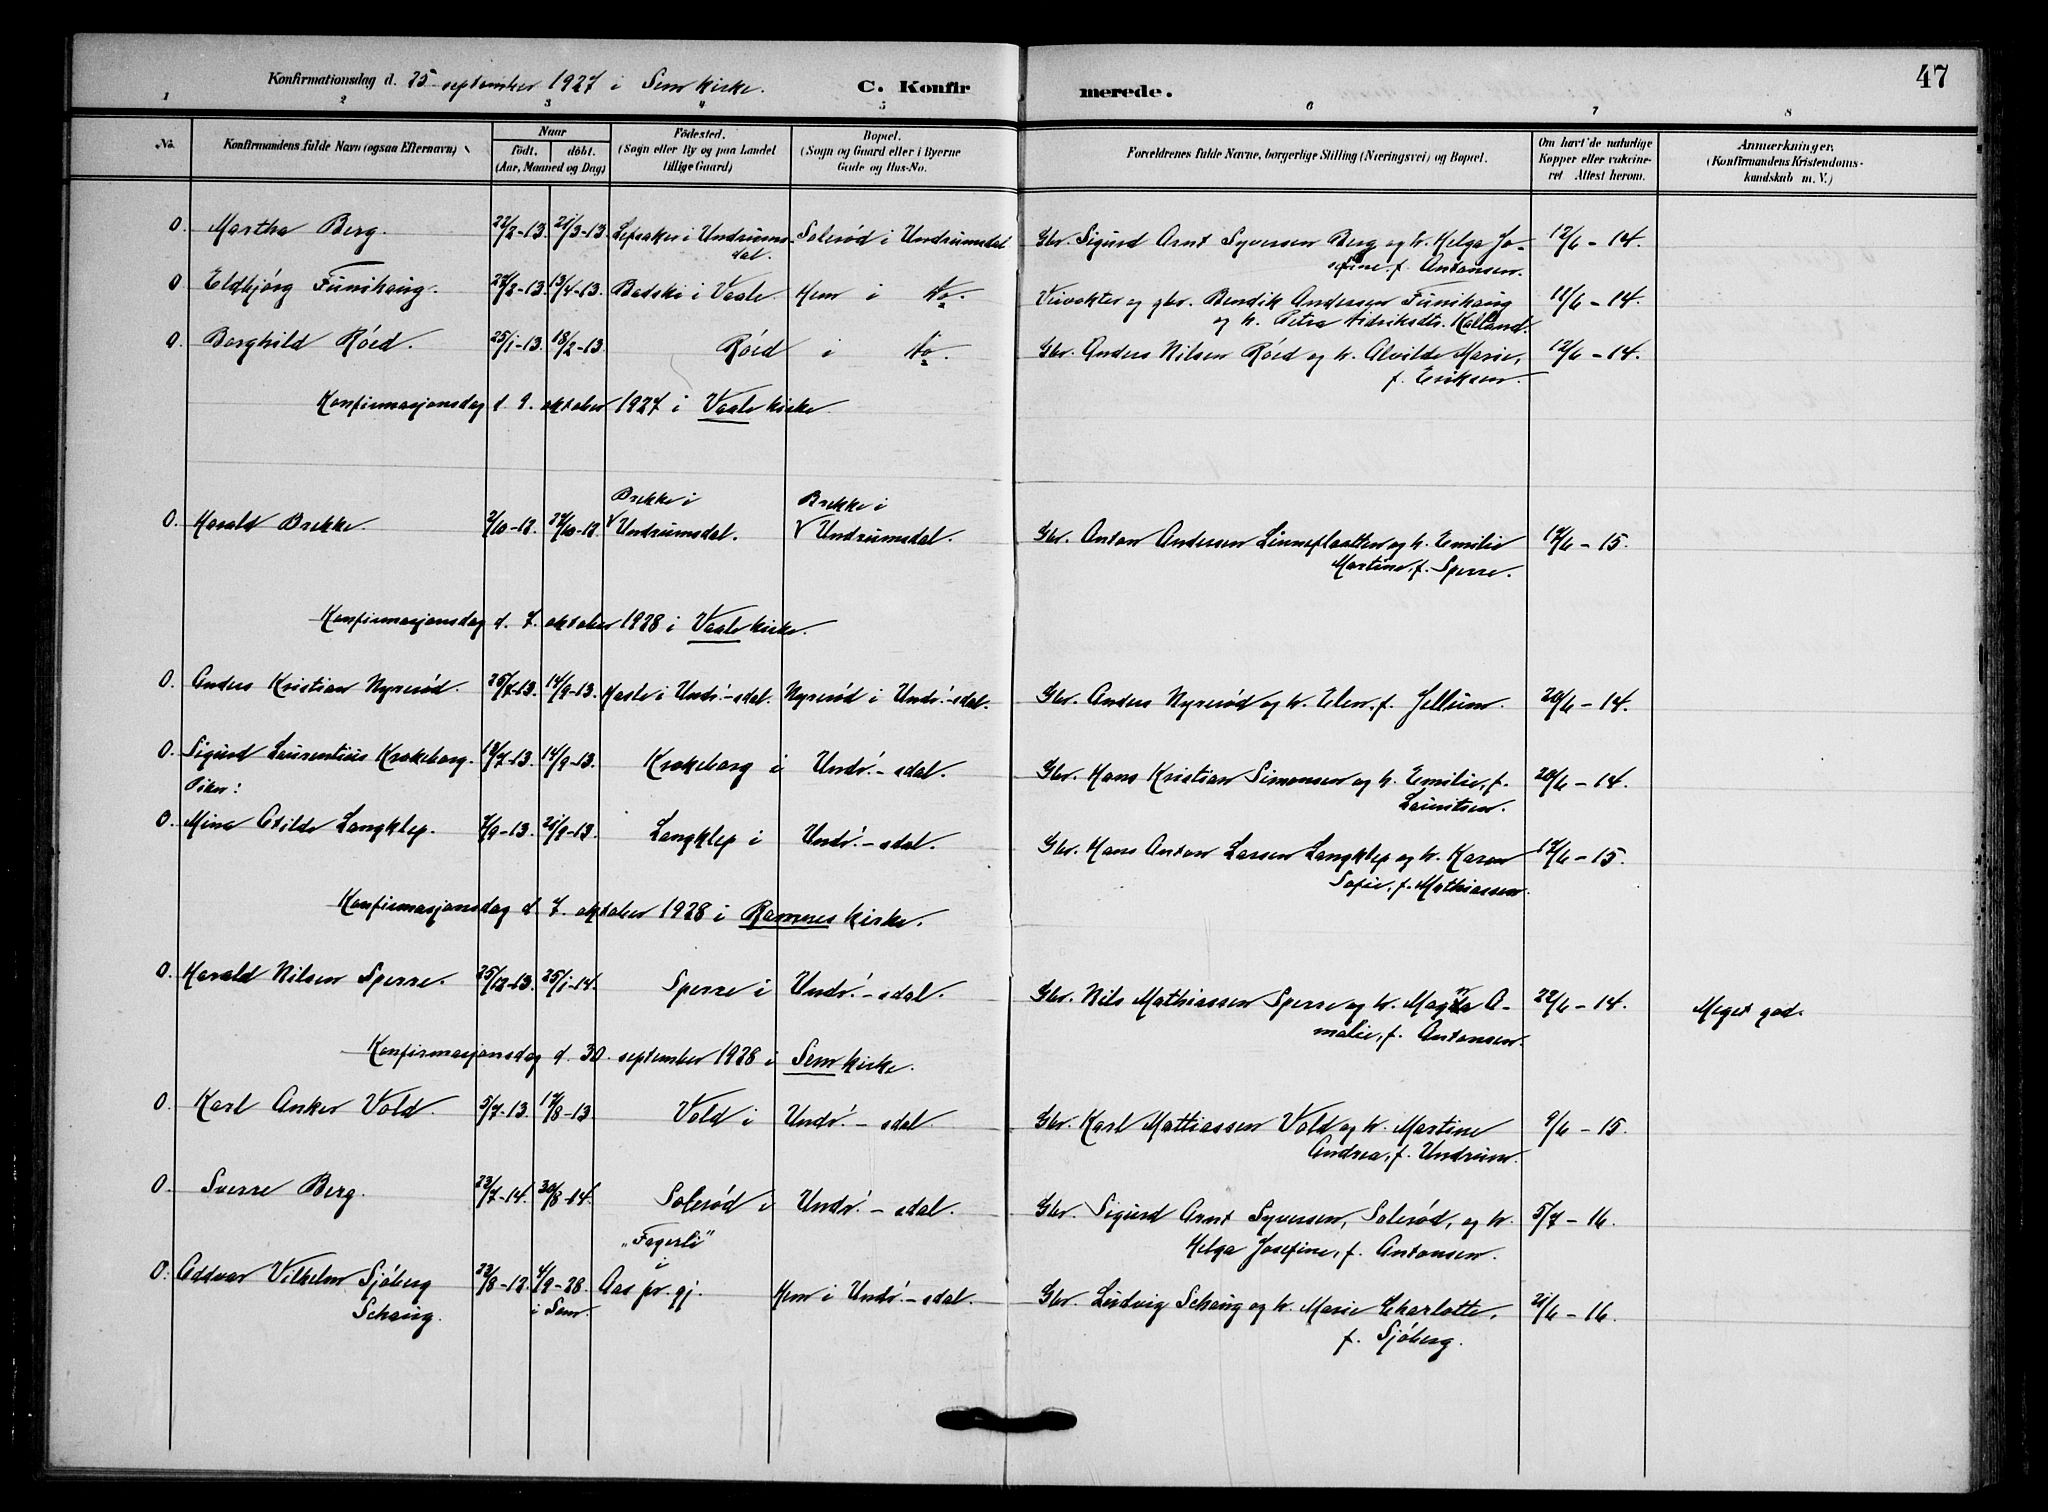 47
Konfirmationsdag d. 25 september 1927 i Sem kirke. C. Konfirmerede.
1 2 3 4 5 6 7 8
No. Konfirmandens fulde Navn (ogsaa Efternavn) Naar født. døbt. (Aar, Maaned og Dag) Fødested. (Sogn eller By og paa Landet tillige Gaard) Bopæl. (Sogn og Gaard eller i Byerne Gade og Hus-No. Forældrenes fulde Navne, borgerlige Stilling (Næringsvei) og Bopæl. Om havt de naturlige Kopper eller vakcineret Attest herom. Anmærkninger. (Konfirmandens Kristendomskundskab m. V.)
0. Martha Berg. 22/2-13. 21/3-13. i Undrumsdal. Solerød i Undrumsdal Gbr. Sigurd Arnt Syversen Berg og h. Helga Jo- 12/6 - 14.
sefine, f. Antonsen.
0 Eldbjørg Funihaug. 13/4-13. i Vaale. Hem i do. og gbr. Bendik Andersen Funihaug 11/6 - 14.
og h. Petra Kolland.
0 Borghild Röed. 25/1-13. 18/2-13. Röed i do. Gbr. Anders Nilsen Röed og h. Alvilde Marie, 12/6 - 14.
f. Eriksen.
Konfirmasjonsdag d. 9. oktober 1927 i Vaale kirke.
Brekke i Brekke i
0. Harald Brekke Undrumsdal. Undrumsdal. Gbr. Anton Andersen og h. Emilie 17/6 - 15.
Martine, f. Sperre.
Konfirmasjonsdag d. 7. oktober 1928 i Vaale kirke.
0. Anders Kristian Nyrerød. 25/7-13. 14/9-13. Hasle i Undr.-sdal. Nyrerød i Undr.-sdal. Gbr. Anders Nyrerød og h. Elen, f. Jellum. 20/6 - 14.
0. Sigurd Laurentius Krokeborg. 14/9-13. Krokeborg i Undr.-sdal. Gbr. Hans Kristian Simonsen og h. Emilie, f. 20/6 - 14.
Piker: Lauritsen.
0. Mina Langklep. 21/9-13. Langklep i Undr.-sdal. Gbr. Hans Anton Larsen Langklep og h. Karen 17/6 - 15.
Sofie, f. Mathiassen.
Konfirmasjonsdag d. 7. oktober 1928 i Ramnes kirke.
0. Harald Nilsen Sperre. 25/12-13. 25/1-14. Sperre i Undr.-sdal. Gbr. Nils Mathiassen Sperre og h. A- 22/6 - 14. Meget god.
malie, f. Antonsen.
Konfirmasjonsdag d. 30. september 1928 i Sem kirke.
0. Karl Anker Vold. 5/7-13. 17/8-13. Vold i Undr.-sdal Gbr. Karl Mattiassen Vold og h. Martine 9/6 - 15.
Andrea, f. Undrum.
0. Sverre Berg. 23/7-14. 30/8-14. Solerød i Undr.-sdal. Gbr. Sigurd Arnt Syversen, Solerød, og h. 5/7 - 16.
"Fagerli" Helga Josefine, f. Antonsen.
i
0. Oddvar Vilhelm Sjöberg 22/8-12. 4/9-28. Aas pr. gj. Hem i Undr.-sdal. Gbr. Ludvig Schaug og h. Marie Charlotte, 21/6 - 16.
Schaug. i Sem. f. Sjöberg.